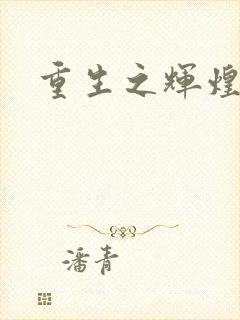 重生之辉煌
潘青